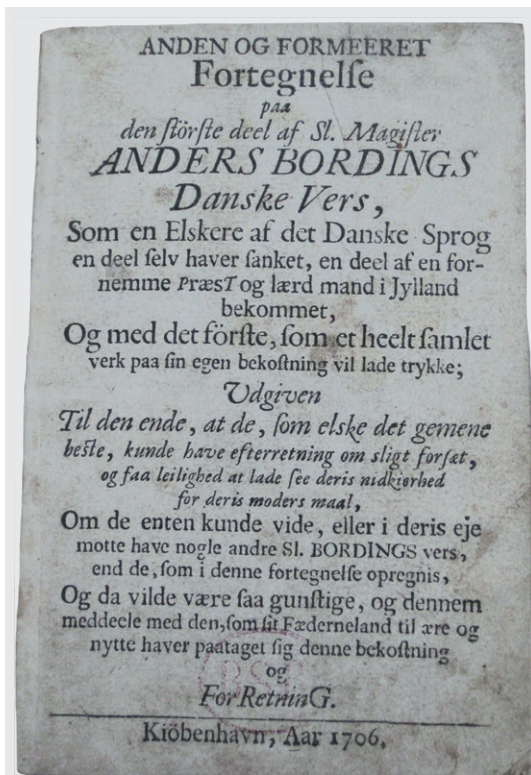 ANDEN OG FORMEERET
Fortegnelſe
paa
den ſtörſte deel af Sl. Magiſter
ANDERS BORDINGS
Danske Vers,
Som en Elskere af det Danske Sprog
en deel ſelv haver ſanket, en deel af en for-
nemme PræsT og lærd mand i Jylland
bekommet,
Og med det förſte, ſom et heelt ſamlet
verk paa ſin egen bekoſtning vil lade trykke;
Udgiven
Til den ende, at de, ſom elske det gemene
beſte, kunde have efterretning om sligt forſæt,
og faa leilighed at lade ſee deris nidkierhed
for deris moders maal,
Om de enten kunde vide, eller i deris eje
motte have nogle andre Sl. BORDINGS vers,
end de, ſom i denne fortegnelſe opregnis,
Og da vilde være ſaa gunſtige, og dennem
meddeele med den, ſom ſit Fæderneland til ære og
nytte haver paataget ſig denne bekoſtning
og
ForRetninG.
Kiöbenhavn, Aar 1706.